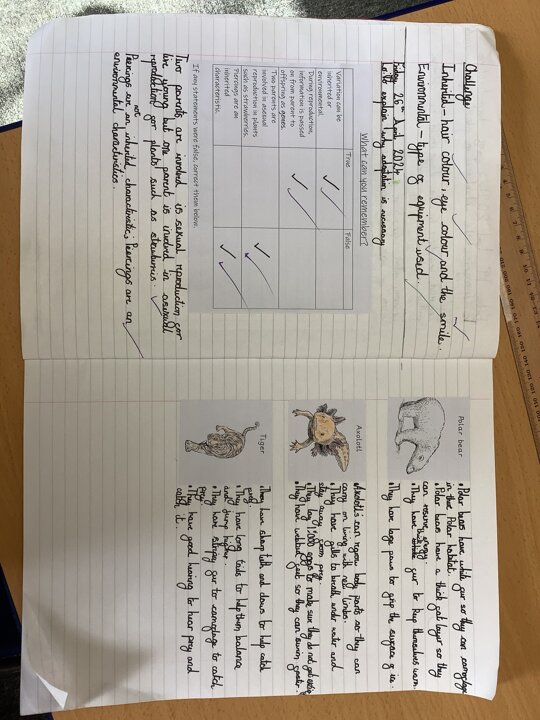 Challenge
Inherited - hair colour, eye colour and the smile.
Environmental - type of equipment used.
Friday 26th April 2024
to explain why adaptation is necessary
What can you remember?
True
False
Variation can be
inherited or
environmental.
During reproduction,
information is passed
on from parent to
offspring as genes.
Two parents are
involved in asexual
reproduction in plants
such as strawberries.
Peircings are an
inherited
characteristic.
If any statements were false, correct them below.
Two parents are involved is sexual reproduction for
live young but one parent is involved in asexual
reproduction for plants such as
Peircings are not an inherited characteristic; Peircings are an
environmental characteristic.
Polar bear
• Polar bears have white fur so they can camoflage
in their Polar habitat.
• Polar bears have a thick fat layer so they
can
• They have thick fur to keep themselves warm.
• They have large paws to grip the surface of ice.
Axolotl
• Axolotl's can regrow body parts so they can
carry on living with new limbs.
• They have gills to breath under water and
stay away from prey.
• They lay 1,000 eggs to make sure they do not get extinct
• They have webbed feet so they can swim faster.
Tiger
• They have sharp teeth and claws to help catch
prey.
• They have long tails to help them balance
and jump higher.
• They have stripey fur to camoflage to catch
prey.
• They have good hearing to hear prey and
catch it.